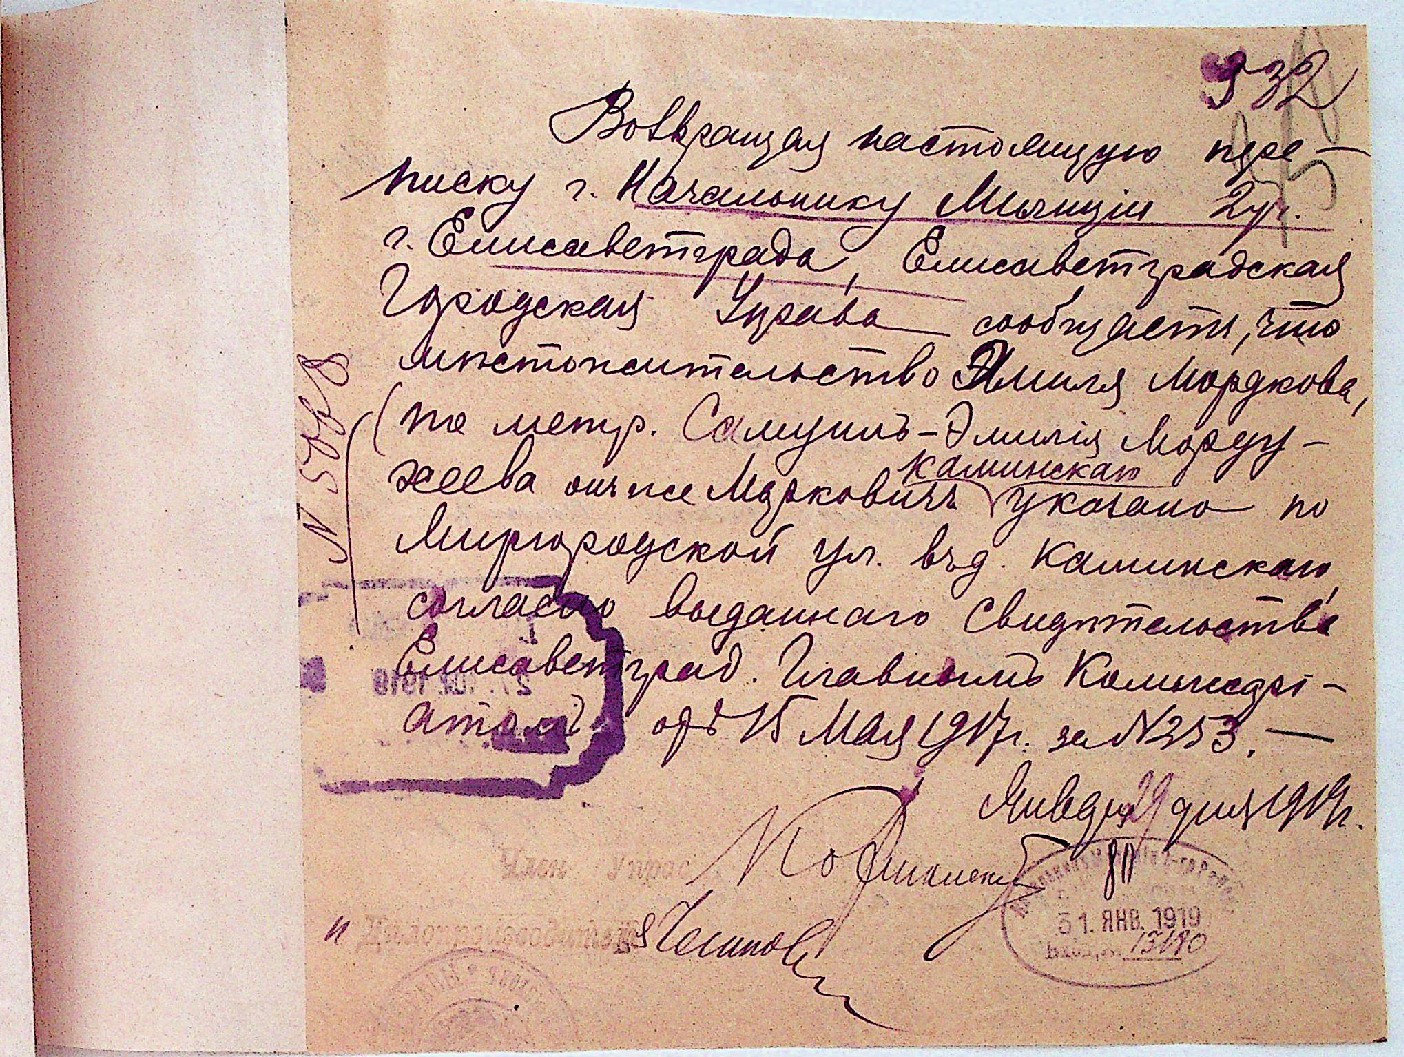 932
Возвращая настоящую пере-
писку г. Начальнику Милиции 2 уч.
г. Елисаветграда, Елисаветградская
Городская Управа сообщает, что
местожительство Эмиля Мордкова,
(по метр. Самуилъ-Эмилія Морду-
хеева онъ же Марковичъ Каминскаго указано по
Миргородской ул. въ д. Каминскаго,
согласно выданнаго Свидѣтельства
Елисаветград. Главнымъ Комисарі-
атомъ отъ 15 Мая 1917 г. за N 253.
Января 29 дня 1919 г.
Член Управы
Делопроизводитель
31. ЯНВ. 1919
13180
N 5868